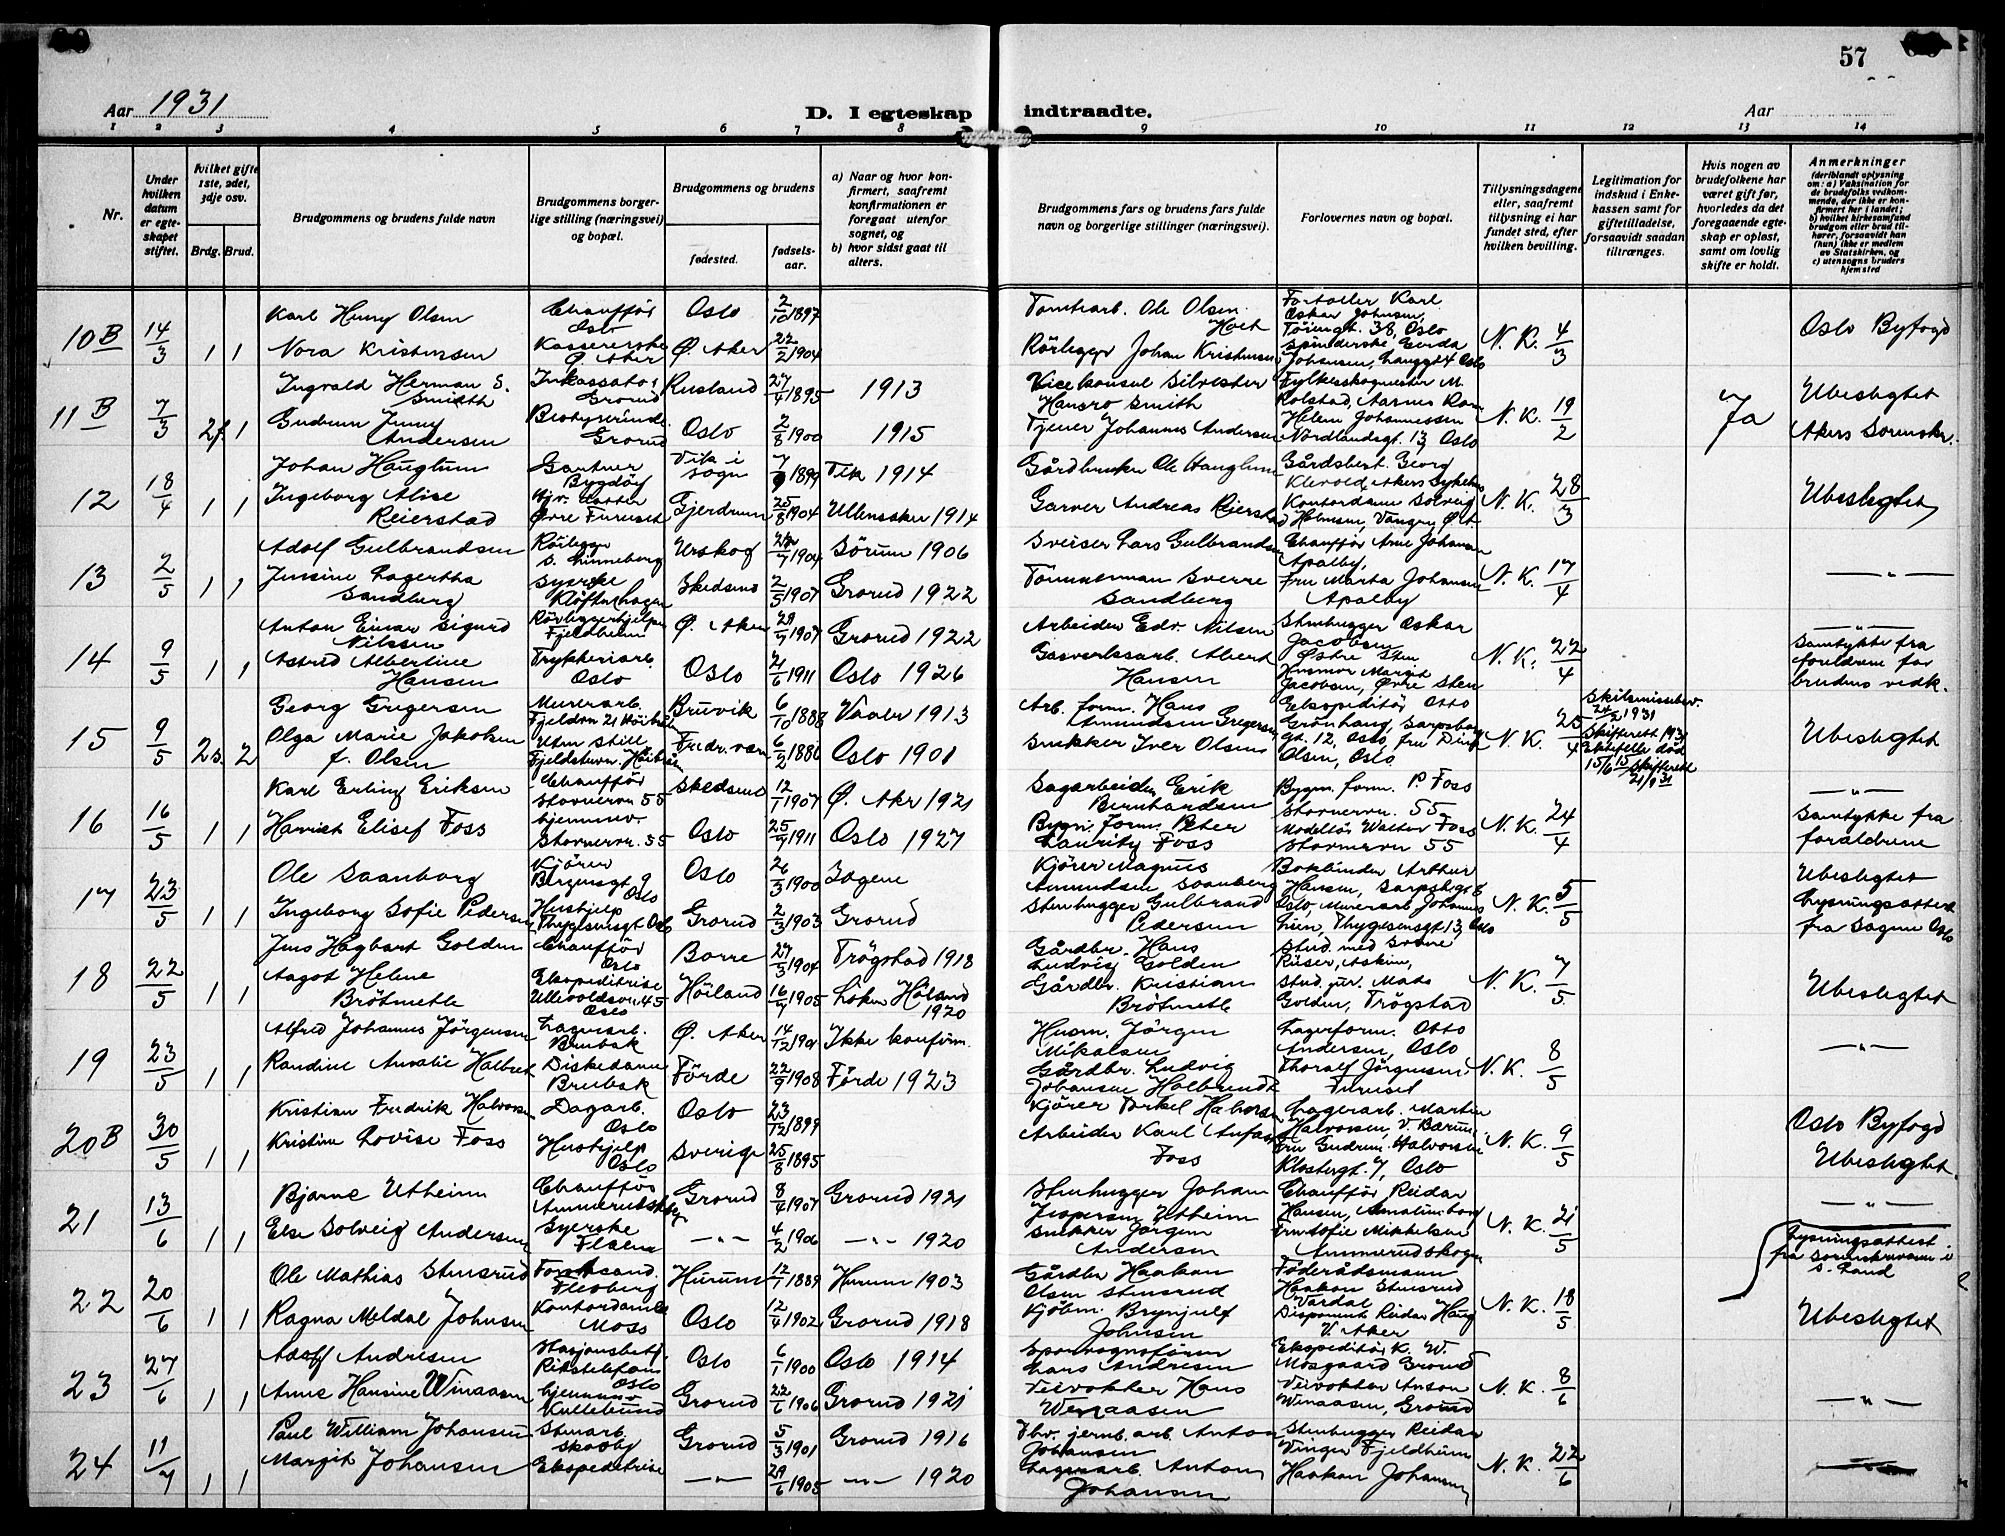 57
Aar 1931
D. I egteskap indtraadte.
Aar
1 2 3 4 5 6 7 8 9 10 11 12 13 14
Nr.
Under hvilken datum er egteskapet stiftet.
Hvilket gifte 1ste, 2det, 3dje osv.
Brdg. Brud.
Brudgommens og brudens fulde navn
Brudgommens borgerlige stilling (næringsvei) og bopæl.
Brudgommens og brudens
fødested.
fødselsaar.
a) Naar og hvor konfirmert, saafremt konfirmationen er foregaat utenfor sognet, og
b) hvor sidst gaat til alters.
Brudgommens fars og brudens fars fulde navn og borgerlige stillinger (næringsvei).
Forlovernes navn og bopæl.
Tillysningsdagene eller, saafremt tillysning ei har fundet sted, efter hvilken bevilling.
Legitimation for indskud i Enkekassen samt for giftetilladelse, forsaavidt saadan tiltrænges.
Hvis nogen av brudefolkene har været gift før, hvorledes da det foregaaende egteskap er opløst, samt om lovlig skifte er holdt.
Anmerkninger (deriblandt oplysning om: a) Vaksination for de brudefolks vedkommende, der ikke er konfirmert her i landet; b) hvilket kirkesamfund brudgom eller brud tilhører, forsaavidt han (hun) ikke er medlem av Statskirken, og c) utensogns bruders hjemsted
10B 14/3 1 1
Karl Henry Olsen Chauffør Oslo Oslo 2/10 1897 Tomtearb. Ole Olsen
Nora Kristensen Kassererske Ø. Aker Ø. Aker 22/2 1904 Rörlegger Johan Kristensen
Fortoller Karl Oskar Johnsen, 38, Oslo
N. K. 4/3 Oslo Byfogd
11B 7/3 2f 1
Ingvald Herman S. Smidth Inkassator Grorud Rusland 27/4 1895 1913 Vicekonsul Silvester Hansro Smith
Gudrun Jenny Andersen Bestyrerinde Grorud Oslo 2/8 1900 1915 Tjener Johannes Andersen
Fylkesskogmester M. Rolstad, Aarnes
Helene Johannessen Nordlandsgt. 13, Oslo
N. K. 19/2 Ja Ubeslegtet Akers Sorenskr.
12 18/4 1 1
Johan Hauglum Gartner Bygdöy Vik i sogn 7/9 1899 Vik 1914 Gårdbruker Ole Hauglum
Ingeborg Alise Reierstad Hjv. datter Øvre Furuset Gjerdrum 25/8 1904 Ullensaker 1914 Garver Andreas Reierstad
Gårdsbest. Georg Klevold, Akers
Kontordame Solveig Holmsen, Vangen
N. K. 28/3 Ubeslegtet
13 2/5 1 1
Adolf Gulbrandsen Rörlegger S. Linneberg Urskog 1904 Sörum 1906 Sveiser Lars Gulbrandsen
Jensine Lagertha Sandberg Syerske Klöfterhagen Skedsmo 2/5 1907 Grorud 1922 Tömmerman Sverre Sandberg
Chauffør Arne Johansen Apalby,
Fru Marta Johansen Apalby
N. K. 17/4 —"—
14 9/5 1 1
Anton Einar Sigurd Nilssen Rörleggerhjelper Fjeldheim Ø. Aker 29/9 1907 Grorud 1922 Arbeider Edv. Nilsen
Astrid Albertine Hansen Trykkeriarb. Oslo Oslo 21/6 1911 Oslo 1926 Gasverksarb. Albert Hansen
Stenhugger Oskar Jacobsen Østre Sten
Husmor Margit Jacobsen, Øvre Sten
N. K. 22/4 —"— Samtykke fra foreldrene for brudens vedk.
15 9/5 2s. 2
Georg Gregersen Murerarb. Bruvik 6/10 1888 Vaaler 1913 Arb. form. Hans Amundsen Gregersen
Olga Marie Jakobsen f. Olsen Uten still. Fredr.værn 6/2 1886 Oslo 1901 Snekker Iver Olsen
Ekspeditör Otto Grönhaug, Sarpsborg gt. 12, Oslo, fru Olsen, Oslo
N. K. 25/4 Skilsmissebev. 24/2 1931 Skifterett 1931 Ektefelle död 15/6 15 Skifterett 21/9 31 Ubeslegtet
16 16/5 1 1
Karl Erling Eriksen Chauffør Stovnervn 55 Skedsmo 12/1 1907 Ø. Aker 1921 Sagarbeider Erik Bernhardsen
Harriet Elisef Foss hjemmev. Stovnervn. 55 Oslo 25/9 1911 Oslo 1927 Bygn. form. Peter Lauritz Foss
Bygn. form. P. Foss Stovnervn. 55
Modellör Walter Foss Stovnervn 55
N. K. 24/4 —"— Samtykke fra foreldrene
17 23/5 1 1
Ole Saanborg Kjörer Bergensgt 9 Oslo Oslo 26/3 1900 Sagene Kjörer Magnus Amundsen Saanberg
Ingeborg Sofie Pedersen Hushjelp Thygesensgt Oslo Grorud 2/3 1903 Grorud Stenhugger Gulbrand Pedersen
Bokbinder Arthur Hansen, Sarpsbgt 8 Oslo, Murerarb. Johannes Lien, Thygesensgt 13, Oslo
N. K. 5/5 Ubeslegtet Lysningsattest fra Sagene Oslo
18 22/5 1 1
Jens Hagbart Golden Chauffør Oslo Borre 27/3 1904 Trögstad 1918 Gårdbr. Hans Ludvig Golden
Aagot Helene Brötmetle Ekspeditrise Ullevoldsvn. 45 Oslo Höland 16/7 1905 Loken Höland 1920 Gårdbr. Kristian Brötmetle
Stud. med Sverre Riiser, Askim,
Stud. jur. Mats Golden, Trögstad
N. K. 7/5 Ubeslegtet
19 23/5 1 1
Alfred Johannes Jörgensen Lagerarb. Brubak Ø. Aker 14/12 1901 Ikke konfirm. Husm. Jörgen Mikalsen
Randine Amalie Halbrendt Diskedame Brubak Förde 22/9 1908 Förde 1923 Gårdbr. Ludvig Johansen Halbrendt
Lagerform. Otto Andersen, Oslo
Thoralf Jörgensen Furuset
N. K. 8/5 —"—
20B 30/5 1 1
Kristian Fredrik Halvorsen Dagarb. Oslo Oslo 23/12 1899 Kjörer Torkel Halvorsen
Kristine Lovise Foss Hushjelp Oslo Sverige 25/8 1895 Arbeider Karl Foss
Lagerarb. Martin Halvorsen, V. Bærum
Fru Gudrun Halvorsen Klostergt. 7, Oslo
N. K. 9/5 Oslo Byfogd Ubeslegtet
21 13/6 1 1
Bjarne Utheim Chauffør Grorud 8/4 1907 Grorud 1921 Stenhugger Johan Jespersen Utheim
Else Solveig Andersen Syerske —"— 4/2 1906 —"— 1920 Snekker Jörgen Andersen
Chauffør Reidar Hansen,
Fru Sofie Mikkelsen Ammerudskogen
N. K. 21/5 —"—
22 20/6 1 1
Ole Mathias Stensrud Flesberg Hurum 12/1 1889 Hurum 1903 Gårdbr Haakon Olsen Stensrud
Ragna Meldal Johnsen Kontordame Moss Oslo 12/4 1902 Grorud 1918 Kjöbm. Brynjulf Johnsen
Föderådsmann Haakon Stensrud Vardal
Disponent Reidar Haug V. Aker
N. K. 18/5 Lysningsattest fra Sorenskriveren i S. Land Ubeslegtet
23 27/6 1 1
Adolf Andresen Stasjonsbetj. Rikstelefon Oslo Oslo 6/1 1900 Oslo 1914 Sporvognsförer Lars Andresen
Anne Hansine Winaasen hjemmev Kullebund Grorud 22/6 1906 Grorud 1921 Veivokter Hans Wenaasen
Ekspeditör K. W. Mosgaard Grorud
Veivokter Anton Winaasen, Grorud
N. K. 8/6 —"—
24 11/7 1 1
Paul William Johansen Stenarb. Skovby Grorud 5/3 1901 Grorud 1916 Fhv. jernb. arb. Anton Johansen
Margit Johansen Ekspeditrise —"— 29/6 1905 —"— 1920 Lagerarb. Anton Johansen
Stenhugger Reidar Vinger Fjeldheim
Haakon Johansen
N. K. 22/6